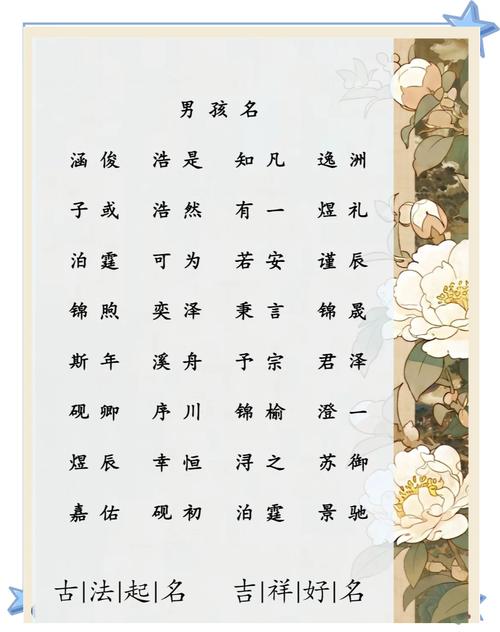 男孩名
涵俊 浩是 知凡 逸洲
子或 浩然 有一 煜礼
泊霆 可为 若安 谨辰
锦煦 奕泽 秉言 锦晟
斯年 溪舟 予宗 君泽
砚卿 序川 锦榆 澄一
煜辰 幸恒 浔之 苏御
嘉佑 砚初 泊霆 景驰
古|法|起|名 吉|祥|好|名